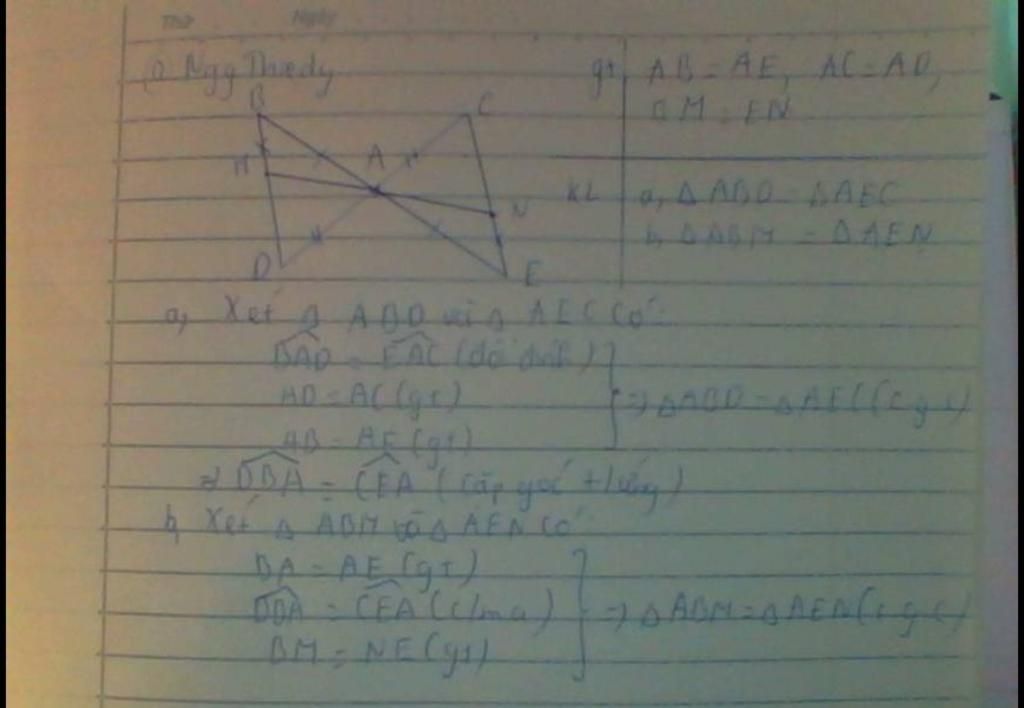 Thứ Ngày
gt AB = AE, AC = AD,
BM = EN
B C
M A
N
D E
KL a, Δ ABD = Δ AEC
b, Δ ABM = Δ AEN
a, Xét Δ ABD và Δ AEC có:
BAD = EAC (đối đỉnh)
AD = AC (gt)
AB = AE (gt)
=> Δ ABD = Δ AEC (c g c)
=> DBA = CEA (cặp góc t/ứng)
b, Xét Δ ABM và Δ AEN có:
BA = AE (gt)
DBA = CEA (c/m a)
BM = NE (gt)
=> Δ ABM = Δ AEN (c g c)